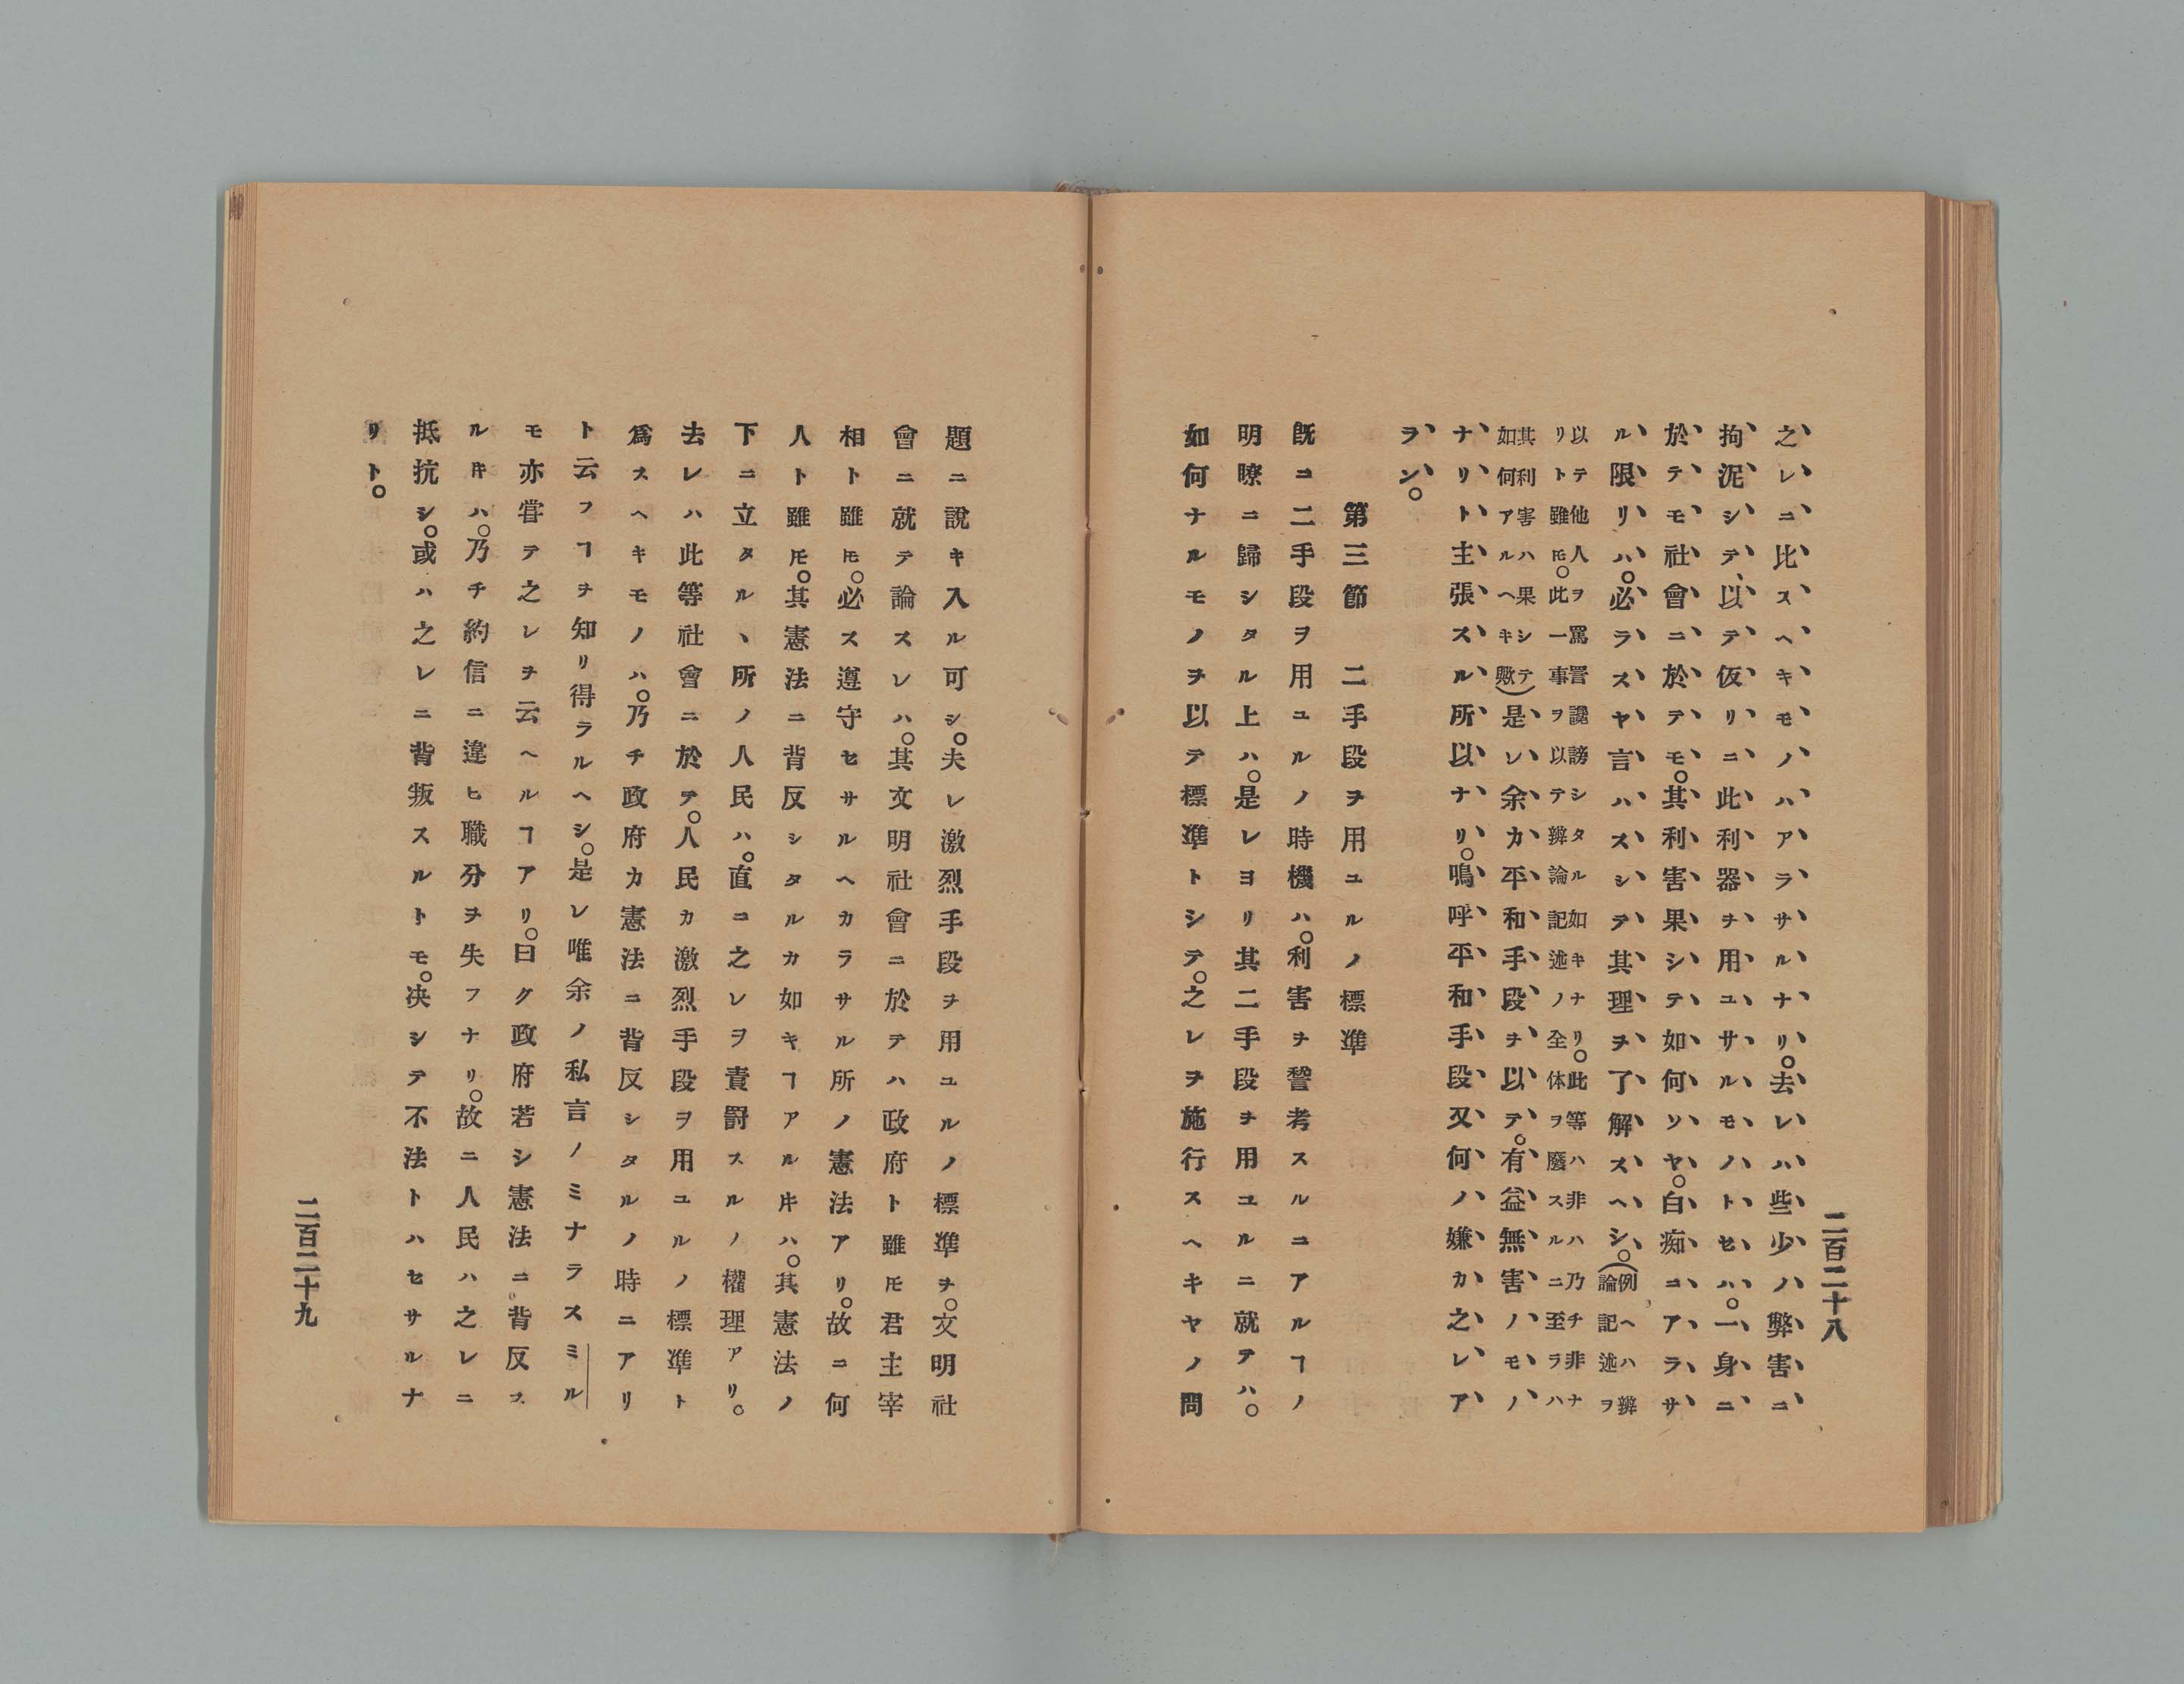 二百二十八
之レニ比スヘキモノハアラサルナリ。去レハ些少ノ弊害ニ
拘泥シテ、以テ仮リニ此利器ヲ用ユサルモノトセハ。一身ニ
於テモ社會ニ於テモ。其利害果シテ如何ソヤ。白痴ニアラサ
ル限リハ。必ラスヤ言ハスシテ其理ヲ了解スヘシ。(例ヘハ辨
論記述ヲ
以テ他人ヲ罵詈讒謗シタル如キナリ。此等ハ非ハ乃チ非ナ
リト雖𪜈。此一事ヲ以テ辨論記述ノ全体ヲ廢スルニ至ラハ
其利害ハ果シテ
如何アルヘキ歟)是レ余カ平和手段ヲ以テ。有益無害ノモノ
ナリト主張スル所以ナリ。嗚呼平和手段又何ノ嫌カ之レア
ラン。
第三節 二手段ヲ用ユルノ標準
既ニ二手段ヲ用ユルノ時機ハ。利害ヲ詧考スルニアルヿノ
明瞭ニ歸シタル上ハ。是レヨリ其二手段ヲ用ユルニ就テハ。
如何ナルモノヲ以テ標準トシテ。之レヲ施行スヘキヤノ問
題ニ說キ入ル可シ。夫レ激烈手段ヲ用ユルノ標準ヲ。文明社
會ニ就テ論スレハ。其文明社會ニ於テハ政府ト雖𪜈君主宰
相ト雖𪜈。必ス遵守セサルヘカラサル所ノ憲法アリ。故ニ何
人ト雖𪜈。其憲法ニ背反シタルカ如キヿアルキハ。其憲法ノ
下ニ立タルヽ所ノ人民ハ。直ニ之レヲ責罰スルノ權理アリ。
去レハ此等社會ニ於テ。人民カ激烈手段ヲ用ユルノ標準ト
爲スヘキモノハ。乃チ政府カ憲法ニ背反シタルノ時ニアリ
ト云フヿヲ知リ得ラルヘシ。是レ唯余ノ私言ノミナラスミル
モ亦嘗テ之レヲ云ヘルヿアリ。曰ク政府若シ憲法ニ背反ス
ルキハ。乃チ約信ニ違ヒ職分ヲ失フナリ。故ニ人民ハ之レニ
抵抗シ。或ハ之レニ背叛スルトモ。决シテ不法トハセサルナ
リト。
二百二十九